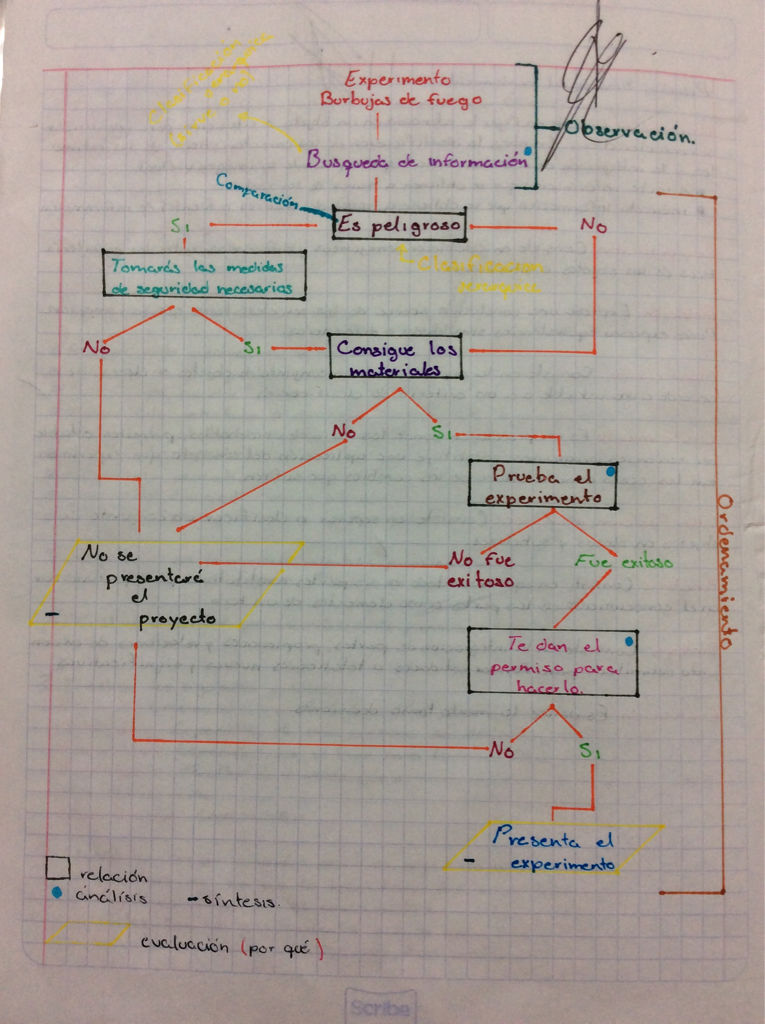 Experimento
Burbujas de fuego
Clasificación
Observación.
Busqueda de información
Comparación
Si
Es peligroso
No
Clasificación
Tomarás las medidas
de seguridad necesarias
No
Si
Consigue los
materiales
No
Si
Prueba el
experimento
Ordenamiento
No se
presentaré
el
proyecto
No fue
exitoso
Fue exitoso
Te dan el
permiso para
hacerlo.
No
Si
Presenta el
experimento
relación
análisis
- síntesis.
evaluación (por qué)
Scribe